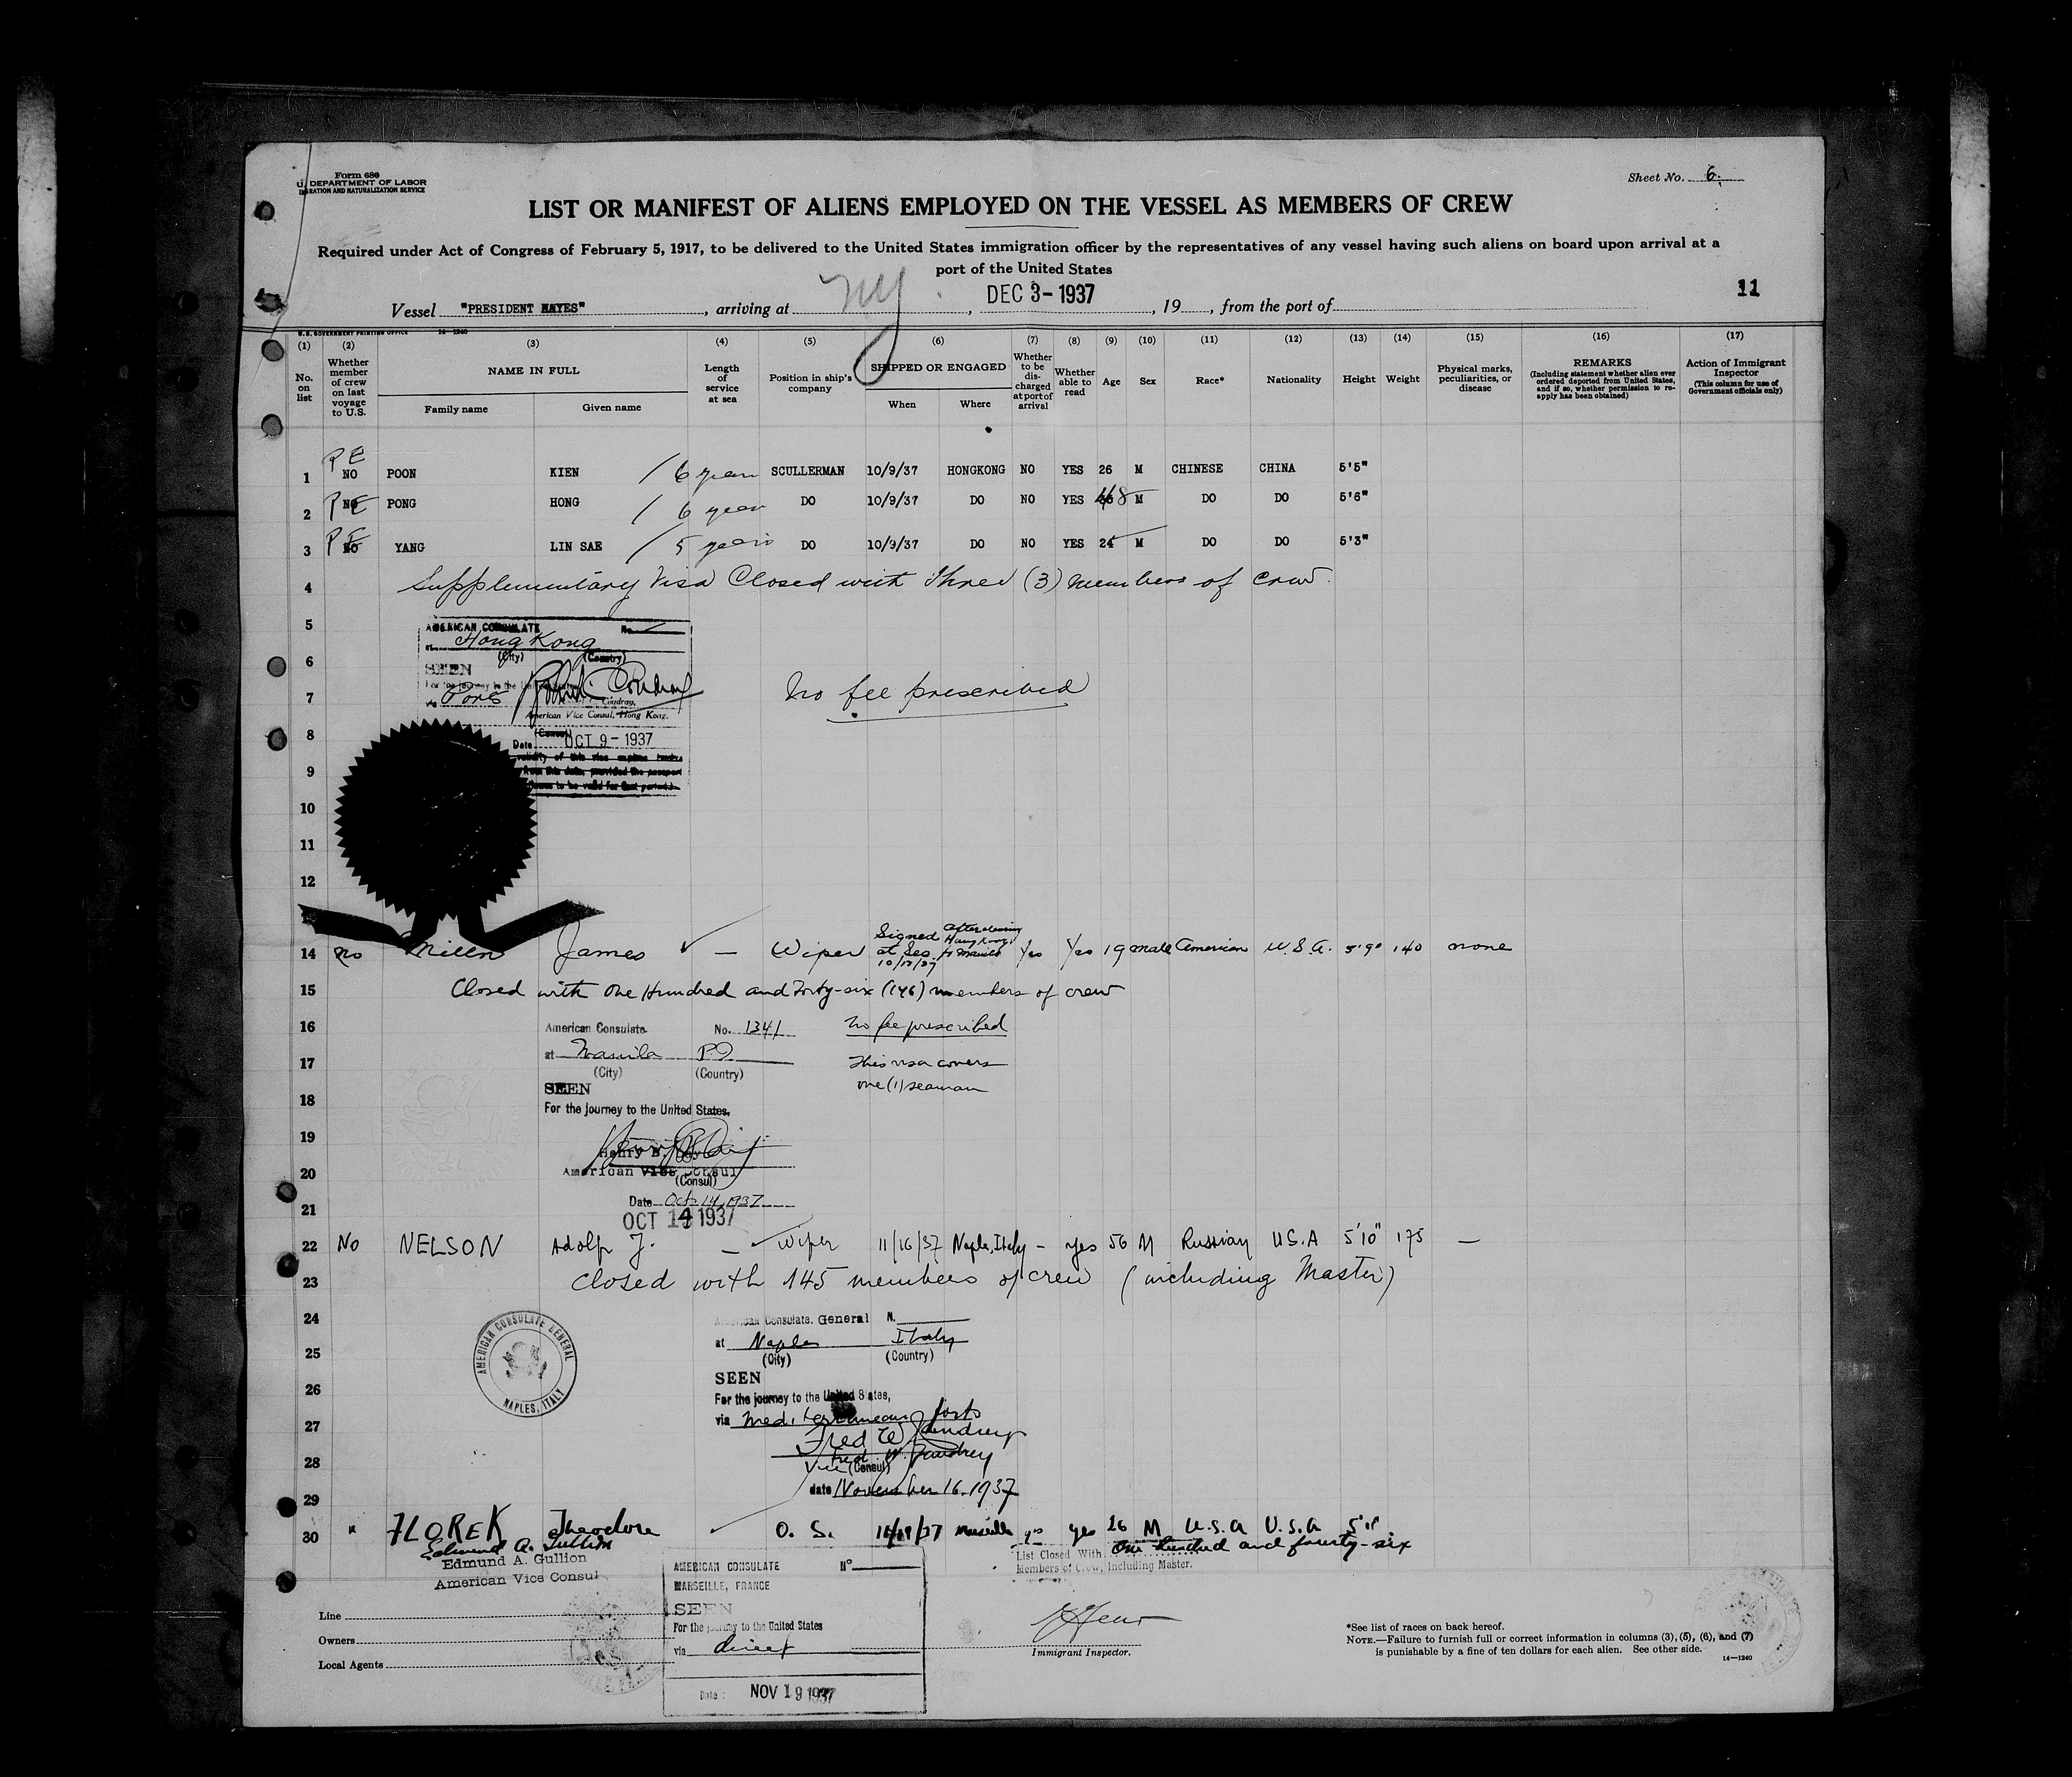 Form 680
U. DEPARTMENT OF LABOR
IGRATION AND NATURALIZATION SERVICE
Sheet No. 6.
LIST OR MANIFEST OF ALIENS EMPLOYED ON THE VESSEL AS MEMBERS OF CREW
Required under Act of Congress of February 5, 1917, to be delivered to the United States immigration officer by the representatives of any vessel having such aliens on board upon arrival at a
port of the United States
11
Vessel "PRESIDENT HAYES", arriving at NY, DEC 3-1937, 19, from the port of
U.S. GOVERNMENT PRINTING OFFICE 14-1240
(1) (2) (3) (4) (5) (6) (7) (8) (9) (10) (11) (12) (13) (14) (15) (16) (17)
No. on list
Whether member of crew on last voyage to U.S.
NAME IN FULL
Family name
Given name
Length of service at sea
Position in ship's company
SHIPPED OR ENGAGED
When
Where
Whether to be discharged at port of arrival
Whether able to read
Age
Sex
Race*
Nationality
Height
Weight
Physical marks, peculiarities, or disease
REMARKS
(Including statement whether alien ever ordered deported from United States, and if so, whether permission to reapply has been obtained)
Action of Immigrant Inspector
(This column for use of Government officials only)
1 PE NO POON KIEN 6 years SCULLERMAN 10/9/37 HONGKONG NO YES 26 M CHINESE CHINA 5'5"
2 PE NO PONG HONG 6 years DO 10/9/37 DO NO YES 48 M DO DO 5'6"
3 PE NO YANG LIN SAE 5 years DO 10/9/37 DO NO YES 24 M DO DO 5'3"
4 Supplementary Visa Closed with Three (3) members of crew.
5
AMERICAN CONSULATE No.
at Hong Kong
6
(City) (Country)
SEEN
For the journey to the United States
7
No fee prescribed
Coudray,
American Vice Consul, Hong Kong.
8
(Consul)
Date OCT 9-1937
validity of this visa expires
9
from this date, provided the passport
to be valid for that period.
10
11
12
14 no James — Wiper Signed at Sea 10/12/37 after leaving Hong Kong for Manila Yes Yes 19 male American U.S.A. 5'9" 140 none
15 Closed with One Hundred and Forty-six (146) members of crew
16
American Consulate. No. 1341
No fee prescribed
at Manila P.I.
17
This visa covers
(City) (Country)
one (1) seaman
SEEN
18
For the journey to the United States,
19
Henry B. Day
20
American Vice Consul
(Consul)
Date Oct 14, 1937
21
OCT 14 1937
22 No NELSON Adolf J. — Wiper 11/16/37 Naples, Italy — yes 56 M Russian U.S.A 5'10" 175 —
23 Closed with 145 members of crew (including Master)
24
AMERICAN CONSULATE GENERAL
NAPLES, ITALY
American Consulate. General N.
at Naples Italy
25
(City) (Country)
SEEN
26
For the journey to the United States,
via Mediterranean ports
27
28
Vice (Consul)
date November 16, 1937
29
30 " FLOREK Theodore O. S. 11/19/37 Marseille yes yes 26 M U.S.A U.S.A 5'11"
Edmund A. Gullion
Edmund A. Gullion
American Vice Consul
List Closed With One hundred and fourty-six
Members of Crew, Including Master.
AMERICAN CONSULATE N°
MARSEILLE, FRANCE
SEEN
For the journey to the United States
via direct
Date: NOV 19 1937
Line
Owners
Local Agents
Immigrant Inspector.
*See list of races on back hereof.
NOTE.—Failure to furnish full or correct information in columns (3), (5), (6), and (7)
is punishable by a fine of ten dollars for each alien. See other side.
14-1240